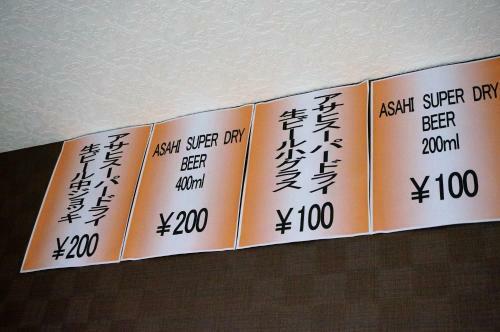 アサヒスーパードライ
生ビール中ジョッキ
￥200
ASAHI SUPER DRY
BEER
400ml
￥200
アサヒスーパードライ
生ビール小グラス
￥100
ASAHI SUPER DRY
BEER
200ml
￥100